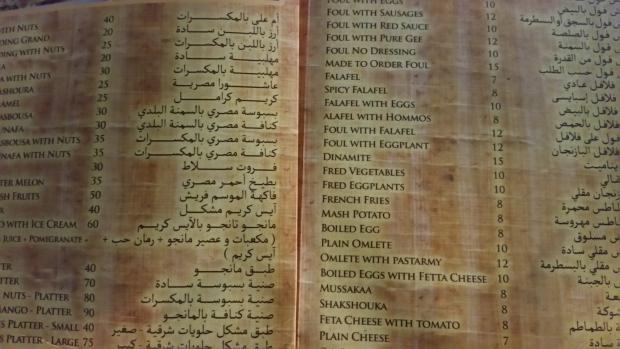 WITH NUTS 40 أم على بالمكسرات
DING GRAND 20 أرز باللبن سادة
DING WITH NUTS 30 أرز باللبن بالمكسرات
20 مهلبية سادة
WITH NUTS 30 مهلبية بالمكسرات
ASHOURA 25 عاشورا مصرية
AMEL 25 كريم كرامل
BASBOUSA 30 بسبوسة مصري بالسمنة البلدي
UNAFA 30 كنافة مصري بالسمنة البلدي
BASBOUSA WITH NUTS 35 بسبوسة مصري بالمكسرات
UNAFA WITH NUTS 35 كنافة مصري بالمكسرات
30 فروت سلاط
TER MELON 35 بطيخ أحمر مصري
SH FRUITS 50 فاكهة الموسم فريش
40 آيس كريم مشكل
WITH ICE CREAM 60 مانجو تانجو بالآيس كريم
JUICE + POMIGRANATE + ( مكعبات و عصير مانجو + رمان حب +
آيس كريم )
40 طبق مانجو
PLATTER 70 صنية بسبوسة سادة
NUTS - PLATTER 80 صنية بسبوسة بالمكسرات
MANGO - PLATTER 90 صنية كنافة بالمانجو
PLATTER - SMALL 40 طبق مشكل حلويات شرقية - صغير
PLATTERS - LARGE 75 طبق مشكل حلويات شرقية - كبير
FOUL WITH EGGS 10 فول بالبيض
FOUL WITH SAUSAGES 12 فول بالسجق أو البسطرمة
FOUL WITH RED SAUCE 8 فول بالصلصة
FOUL WITH PURE GEF 12 فول بالسمنة
FOUL NO DRESSING 10 فول من القدرة
MADE TO ORDER FOUL 15 فول حسب الطلب
FALAFEL 7 فلافل عادي
SPICY FALAFEL 8 فلافل إسبايسى
FALAFEL WITH EGGS 10 فلافل بالبيض
ALAFEL WITH HOMMOS 8 فلافل بالحمص
FOUL WITH FALAFEL 12 فول على فلافل
FOUL WITH EGGPLANT 12 فول البازنجان
DINAMITE 15 ديناميت
FRED VEGETABLES 10
FRED EGGPLANTS 10 بازنجان مقلي
FRENCH FRIES 8 بطاطس محمرة
MASH POTATO 8 بطاطس مهروسة
BOILED EGG 8 بيض مسلوق
PLAIN OMLETE 8 مقلي سادة
OMLETE WITH PASTARMY 12 مقلي بالبسطرمة
BOILED EGGS WITH FETTA CHEESE 10 بالجبنة
MUSSAKAA 8
SHAKSHOUKA 8
FETA CHEESE WITH TOMATO 8 بالطماطم
PLAIN CHEESE 7 سادة